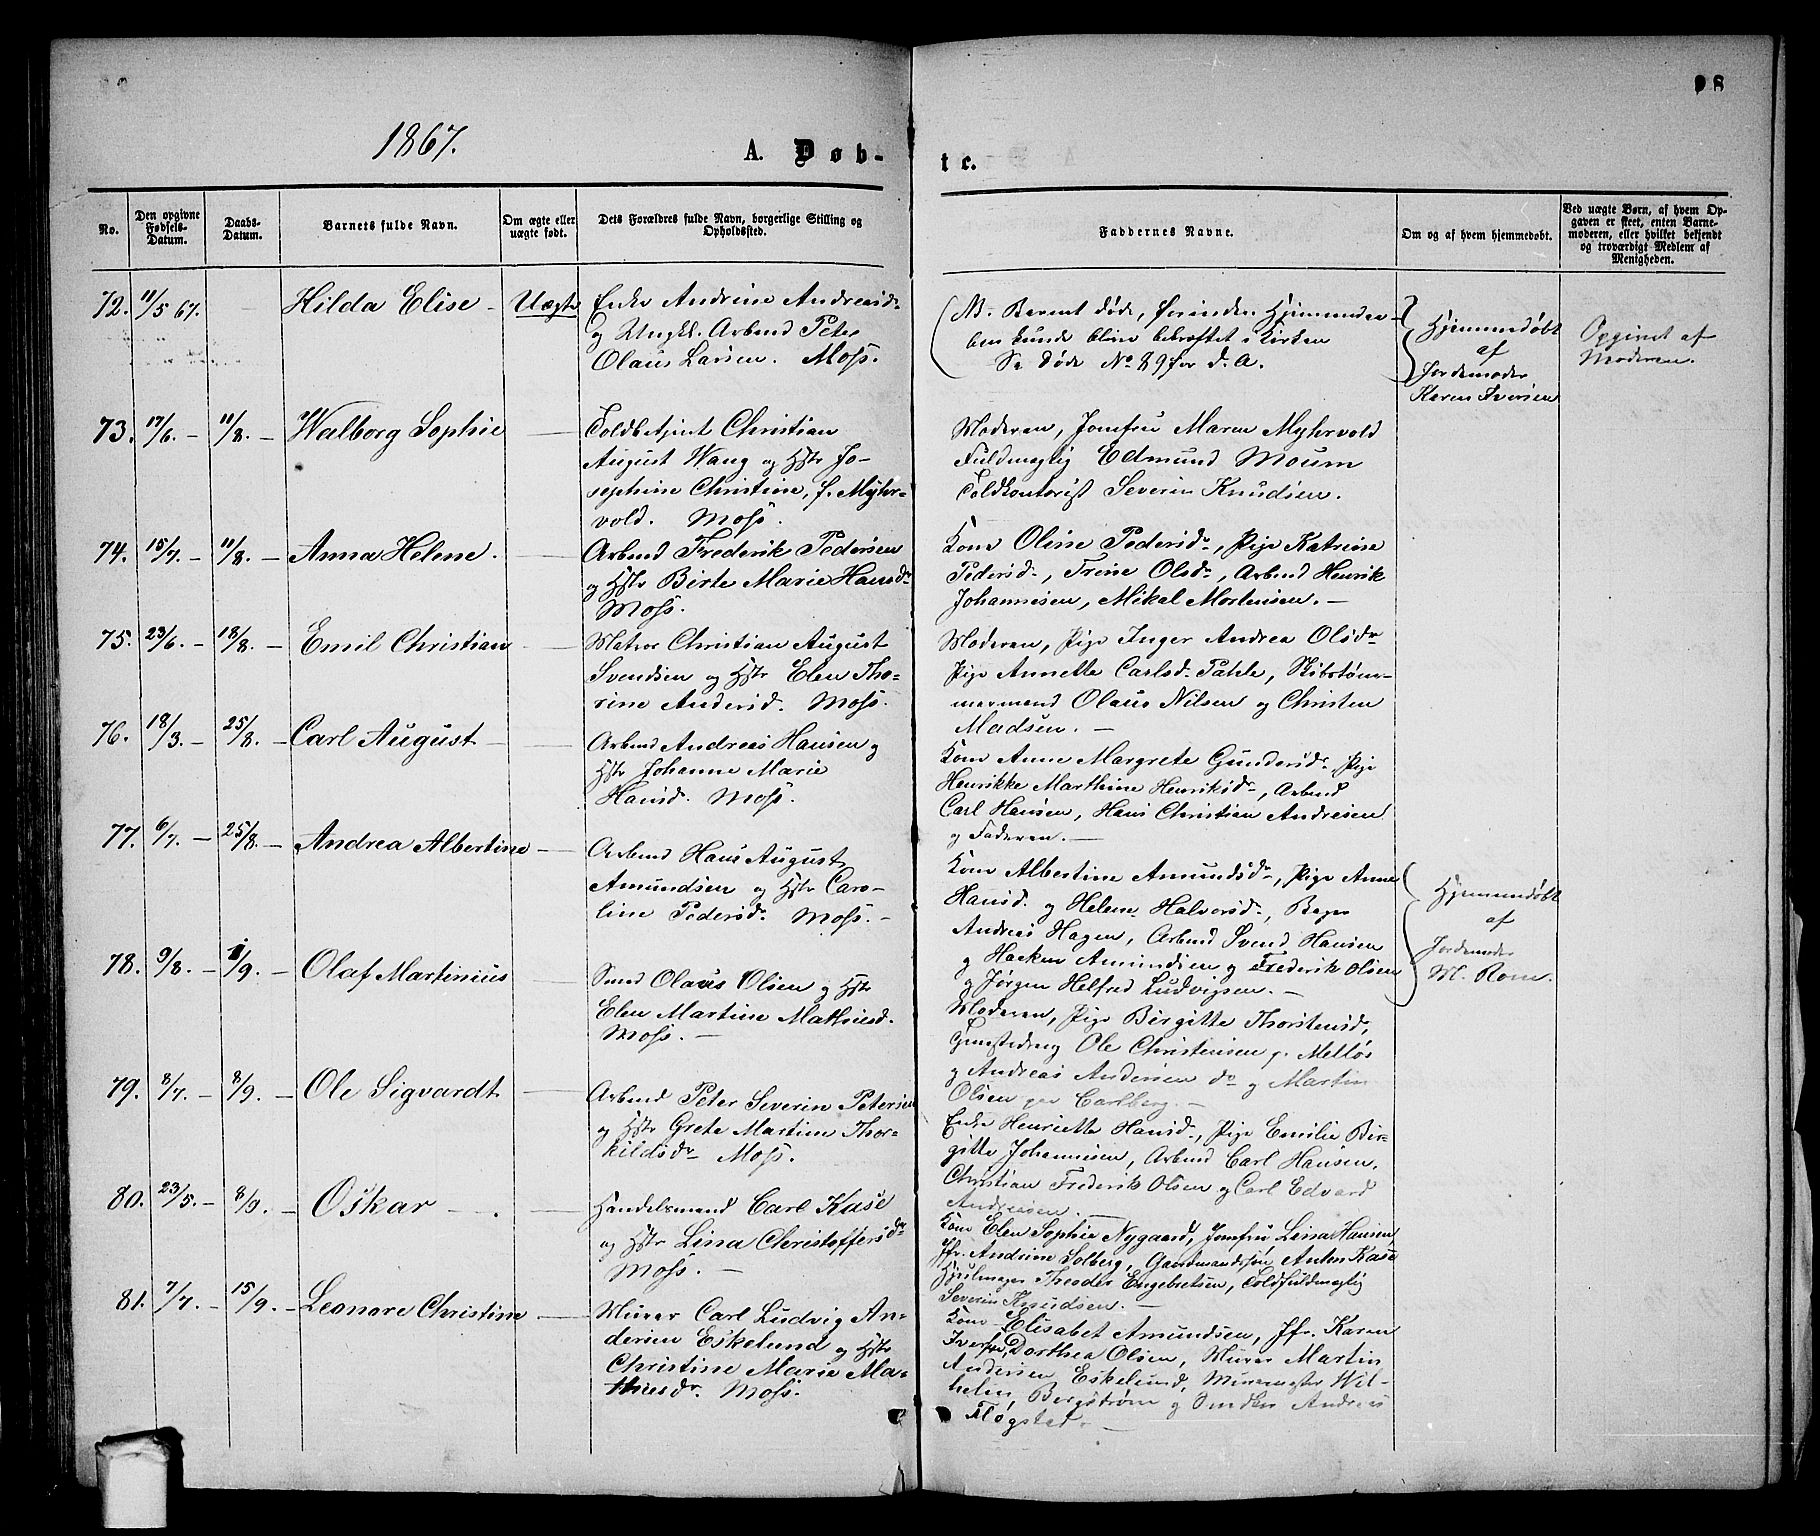 98
1867.
A. Døb-
te.
No.
Den opgivne Fødsels-Datum.
Daabs-Datum.
Barnets fulde Navn.
Om ægte eller uægte født.
Dets Forældres fulde Navn, borgerlige Stilling og Opholdssted.
Faddernes Navne.
Om og af hvem hjemmedøbt.
Ved uægte Børn, af hvem Opgaven er skeet, enten Barnemoderen, eller hvilket bekjendt og troværdigt Medlem af Menigheden.
72. 11/5 67. Hilda Elise - Uægte
Enke Andrine Andreasd.
og Ungkl. Arbmd Peter
Olaus Larsen. Moss.
Barnet døde, førinden Hjemmedaa-
ben kunde blive bekræftet i Kirken
Se Døde No 89 for d. A.
Hjemmedøbt
af
Jordemoder
Karen Iversen
Opgivet af
Moderen.
73. 17/6. - 11/8. - Walborg Sophie
Toldbetjent Christian
August Wang og Hstr Jo-
sephine Christine, f. Myhr-
vold. Moss.
Moderen, Jomfru Maren Myhrvold
Fuldmægtig Edmund Moum
Toldkontorist Severin Knudsen.
74. 15/7. - 11/8. - Anna Helene.
Arbmd Frederik Pedersen
og Hstr Birte Marie Hansdr
Moss.
Kone Oline Pedersdr, Pige Katrine
Pedersd., Trine Olsdr, Arbmd Henrik
Johannesen, Mikal Mortensen. -
75. 23/6. - 18/8. - Emil Christian
Matros Christian August
Svendsen og Hstr Elen Tho-
rine Andersd. Moss.
Moderen, Pige Inger Andrea Olsdr
Pige Annette Carlsd. Pahle, Skibstøm-
mermand Olaus Nilsen og Christen
Madsen. -
76. 18/3. - 25/8. - Carl August -
Arbmd Andreas Hansen og
Hstr Johanne Marie
Hansd. Moss.
Kone Anne Margrete Gundersd. Pige
Henrikke Marthine Henriksd., Arbmd
Carl Hansen, Hans Christian Andresen
og Faderen. -
77. 6/7. - 25/8. - Andrea Albertine -
Arbmd Hans August
Amundsen og Hstr Caro-
line Pedersd. Moss. -
Kone Albertine Amundsdr, Pige Anne
Hansd. og Helene Halvorsd., Bager
Andreas Hagen, Arbmd Svend Hansen
og Haeken Amundsen og Frederik Olsen
og Jørgen Helfred Ludvigsen. -
Hjemmedøbt
af
Jordemoder
M. Rom.
78. 9/8. - 1/9. - Olaf Martinius
Smed Olaus Olsen og Hstr
Elen Martine Mathiesd.
Moss. -
Moderen, Pige Birgitte Thorstensd,
Ole Christensen p. Melløs
og Andreas Andersen do og Martin
Olsen Carlberg. -
79. 8/7. - 8/9. - Ole Sigvardt
Arbmd Peter Severin Petersen
og Hstr Grete Martine Thor-
kildsdr Moss.
Enke Henriette Hansd., Pige Emilie Bir-
gitte Johannesen, Arbmd Carl Hansen,
Christian Frederik Olsen og Carl Edvard
Andresen. -
80. 23/5. - 8/9. - Oskar
Handelsmand Carl Kase
og Hstr Lina Christoffersdr
Moss. -
Kone Elen Sophie Nygaard, Jomfru Lina Hansen,
Jfr. Andrine Solberg, Gaardmandssøn Anton Kase
Hjulmager Theodor Engebretsen, Toldfuldmægtig
Severin Knudsen. -
81. 7/7. - 15/9. - Leonore Christine
Murer Carl Ludvig An-
dersen Eskelund og Hstr
Christine Marie Ma-
thiesdr. Moss.
Kone Elisabet Amundsen, Jfr. Karen
Iversen, Dorthea Olsen, Murer Martin
Andersen Eskelund, Murermester Wil-
helm Bergstrøm og Snedker Andreas
Fløgstad. -